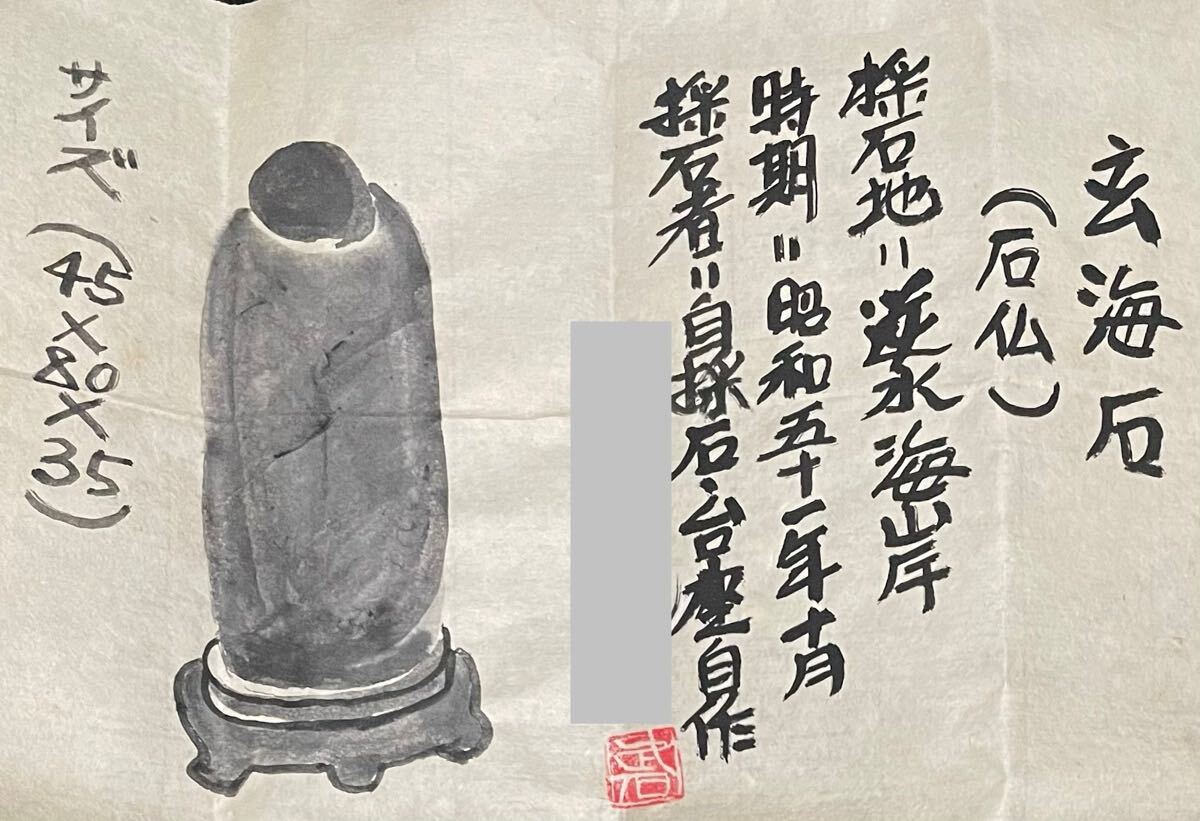 玄海石
(石仏)
採石地=水海岸
時期=昭和五十一年十月
採石者=自採石、台座自作
サイズ(45×80×35)